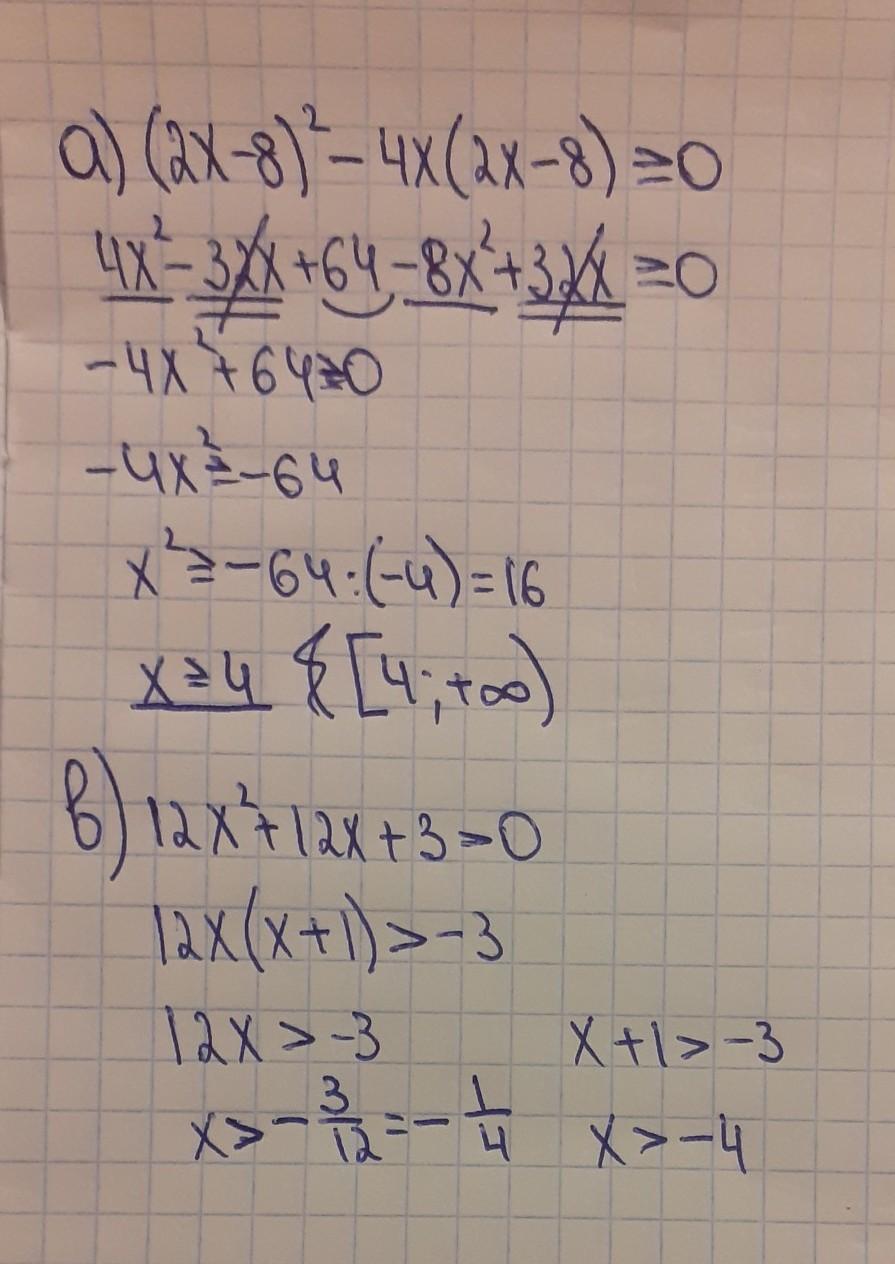 а) (2x-8)² - 4x(2x-8) ≥ 0
4x² - 32x + 64 - 8x² + 32x ≥ 0
-4x² + 64 ≥ 0
-4x² ≥ -64
x² ≥ -64 : (-4) = 16
x ≥ 4 [4; +∞)
в) 12x² + 12x + 3 > 0
12x(x+1) > -3
12x > -3 x+1 > -3
x > -3/12 = -1/4 x > -4